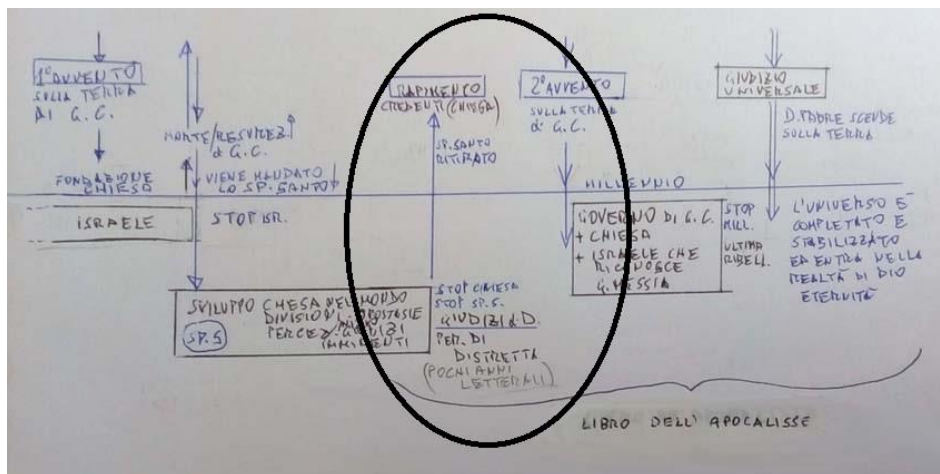 1° AVVENTO
SULLA TERRA
DI G.C.
FONDAZIONE
CHIESA
ISRAELE
MORTE/RESUREZ.
di G.C.
VIENE MANDATO
LO SP. SANTO
STOP ISR.
SVILUPPO CHIESA NEL MONDO
DIVISIONI APOSTASIE
SP.S
IMMINENTI
RAPIMENTO
CREDENTI (CHIESA)
SP. SANTO
RITIRATO
STOP CHIESA
STOP SP.S.
GIUDIZI di D.
PER. DI
DISTRETTA
(POCHI ANNI
LETTERALI)
2° AVVENTO
SULLA TERRA
di G.C.
MILLENNIO
GOVERNO DI G.C.
+ CHIESA
+ ISRAELE CHE
RICONOSCE
G. MESSIA
STOP
MILL.
ULTIMA
RIBELL.
GIUDIZIO
UNIVERSALE
D. PADRE SCENDE
SULLA TERRA
L'UNIVERSO È
COMPLETATO E
STABILIZZATO
ED ENTRA NELLA
REALTÀ DI DIO
ETERNITÀ
LIBRO DELL'APOCALISSE